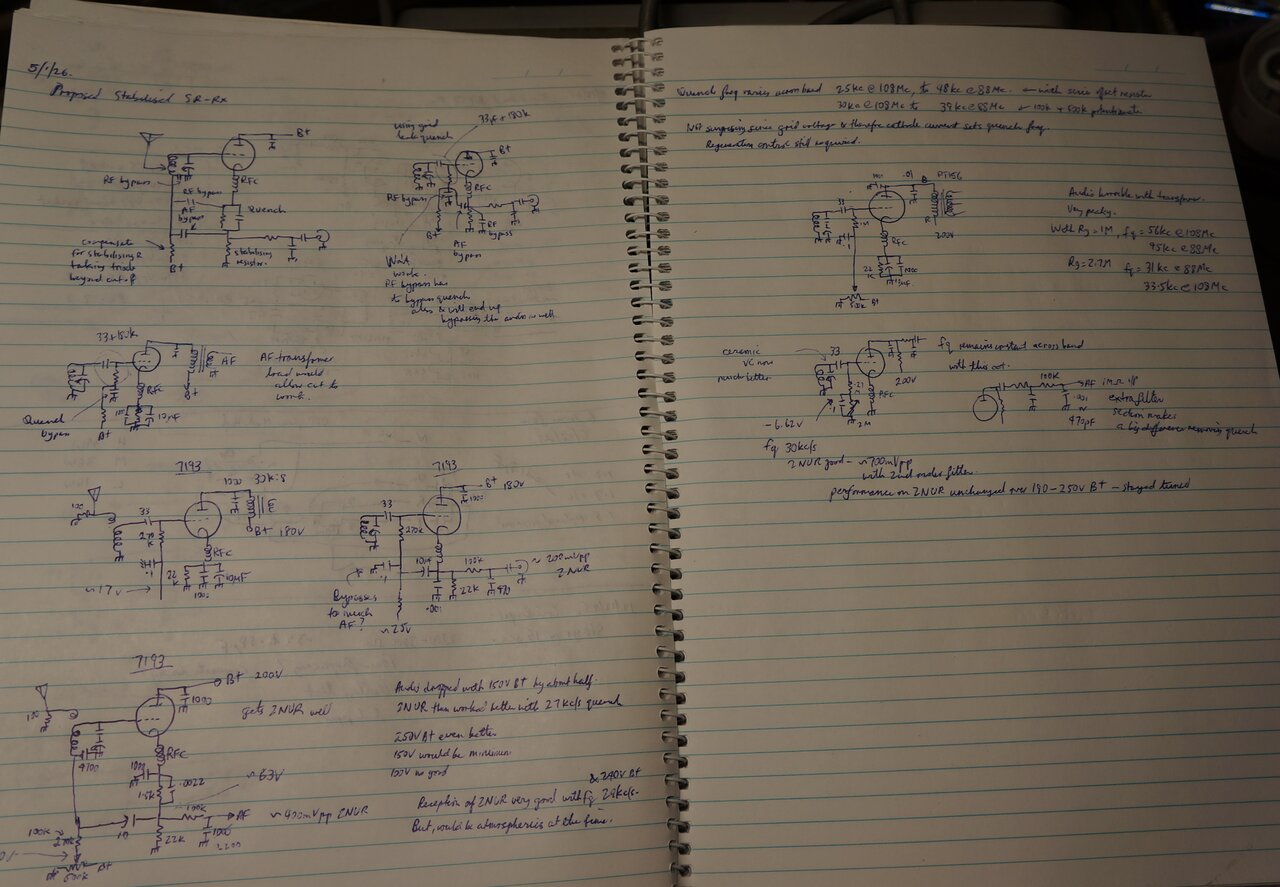 5/1/26.
Proposed Stabilised SR-Rx
B+
RF bypass
RFC
RF bypass
AF bypass
Quench
compensate
for stabilising &
taking triode
beyond cutoff
B+
stabilising
resistor
E
using grid
leak quench
33pF + 180k
B+
RFC
RF bypass
RF
bypass
B+
AF
bypass
Wont
work.
RF bypass has
to bypass quench
also & will end up
bypassing the audio as well.
33+180k
AF
RFC
10µF
E
B+
Quench
bypass
B+
AF transformer
load would
allow cct to
work.
7193
.001
30K:8
33
B+ 180V
RFC
22K
1000
E
10µF
~17V
7193
B+ 180V
1000
33
270K
RFC
10µF
100K
~ 200mVpp
2NUR
22K
470
.001
E
Bypasses
to much
AF?
~25V
7193
B+ 200V
1000
gets 2NUR well
RFC
4700
.0022
1.5K
~63V
100K
AF
~400mVpp 2NUR
22K
1000
E
100K
B+
500K
Audio dropped with 150V B+ by about half.
2NUR then worked better with 27kc/s quench
250V B+ even better
150V would be minimum
100V no good
& 240V B+
Reception of 2NUR very good with fq 28kc/s.
But, would be atmospherics at the time.
Quench freq varies across band 25kc @ 108Mc, to 48kc @ 88Mc. ← with series offset resistor
30kc @ 108Mc to 39kc @ 88Mc ← 100k + 500k potentiometer
Not surprising since grid voltage & therefore cathode current sets quench freq.
Regeneration control still required.
.001
.01
PT156
33
RFC
200V
22K
E
500K
B+
Audio horrible with transformer.
Very peaky.
With Rg=1M, fq=56kc @ 108Mc
95kc @ 88Mc
Rg=2.7M fq=31kc @ 88Mc
33.5kc @ 108Mc
ceramic
VC now
much better
33
200V
RFC
2M
-6.62V
fq 30kc/s
fq remains constant across band
with this cct.
100K
RF 1MΩ i/p
.001
~
470pf
extra filter
section makes
a big difference removing quench
2NUR good - ~700mVpp
with 2nd order filter.
performance on 2NUR unchanged over 190-250V B+ - stayed tuned